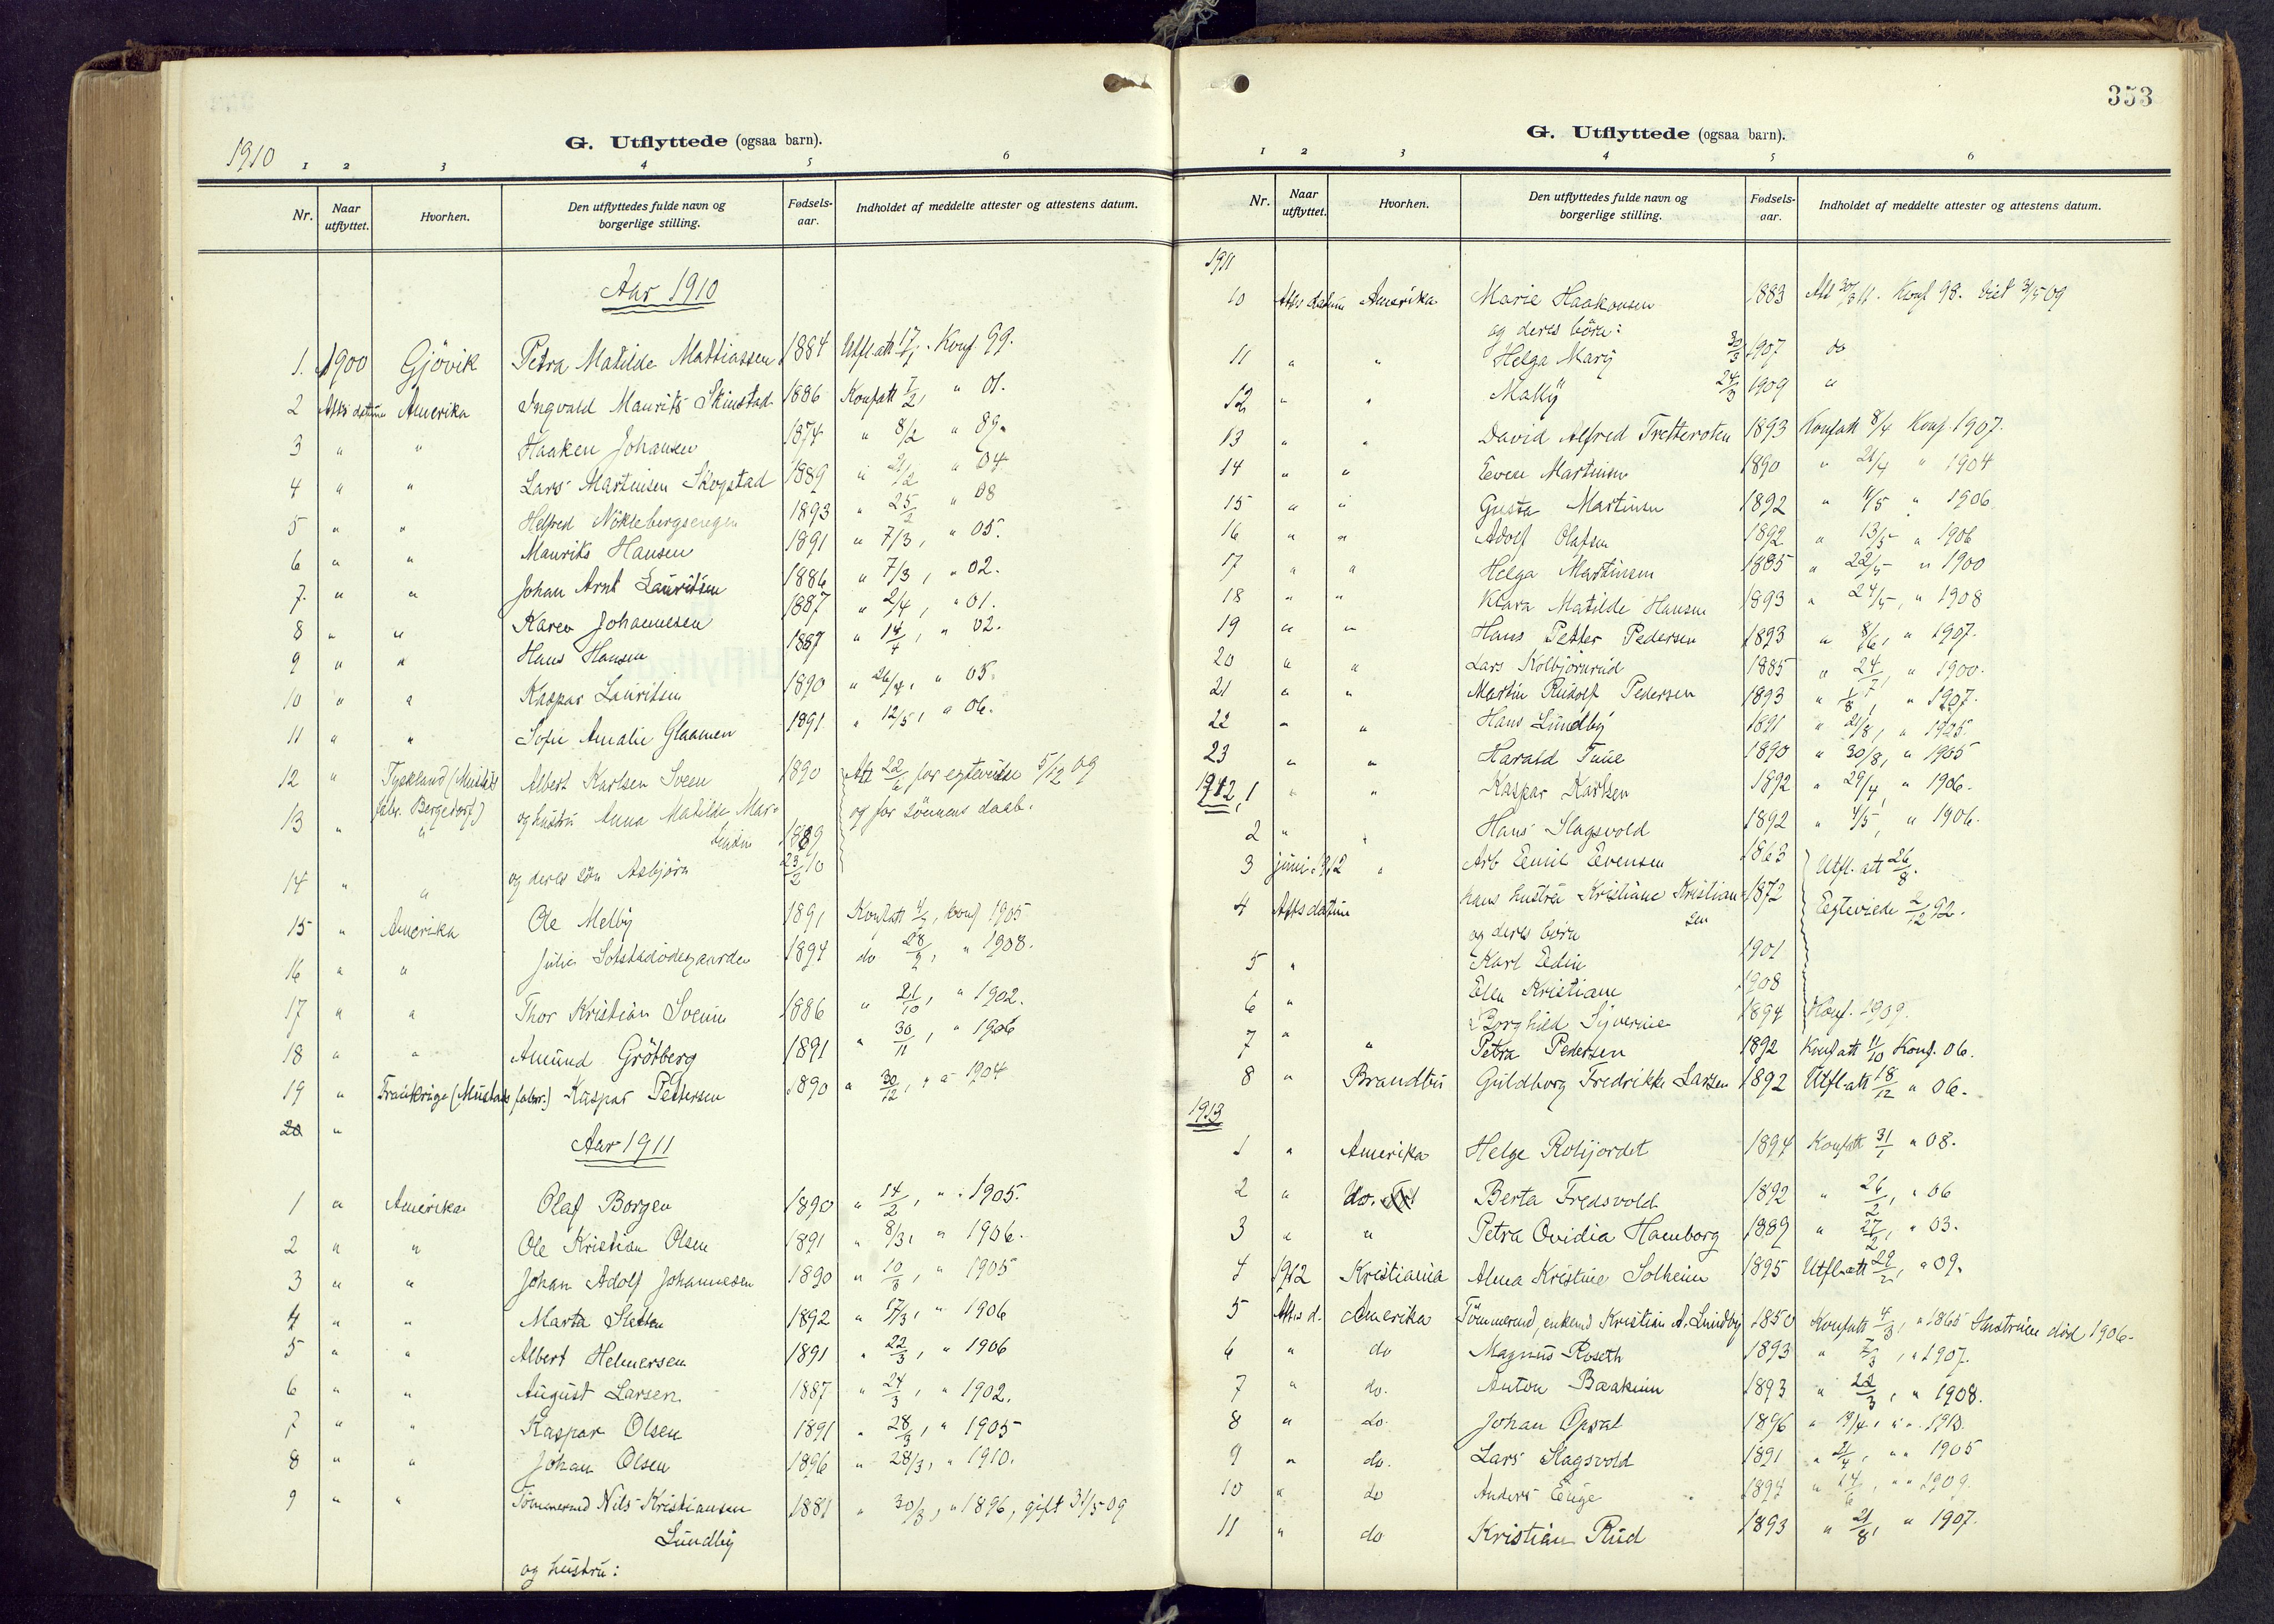 1910
G. Utflyttede (ogsaa barn).
1 2 3 4 5 6
Nr. Naar utflyttet. Hvorhen. Den utflyttedes fulde navn og borgerlige stilling. Fødselsaar. Indholdet af meddelte attester og attestens datum.
Aar 1910
1. 1900 Gjövik Petra Matilde Mattiassen 1884 Utfl.att. 17/1. Konf. 99.
2 Atts datum Amerika Ingvald Maurits Skinstad 1886 Konfatt 7/2, " 01.
3 " " Haaken Johansen 1874 " 8/2 " 89.
4 " " Lars Martinsen Skogstad 1889 " 21/2 " 04
5 " " Helfred Nöklebergseugen 1893 " 25/2 " 08
6 " " Mauriks Hansen 1891 " 7/3, " 05.
7. " " Johan Arnt Lauritsen 1886 " 7/3, " 02.
8 " " Karen Johannesen 1887 " 2/4, " 01.
9 " " Hans Hansen 1887 " 14/4, " 02.
10 " " Kaspar Lauritsen 1890 " 26/4. " 05.
11 " " Sofie Amalie Glaamen 1891 " 12/5, " 06.
12 " Tyskland (Mustads Albert Karlsen Sveen 1890 Att 22/6 for egtevielse 5/12 09
13 " fabr. Bergedorf) " og hustru Anna Matilde Mar- og for sönnens daab.
tinsen 1889
14 " " og deres sön Asbjörn 23/2 10
15 " Amerika Ole Melby 1891 Konfatt 4/7, konf 1905
16 " " Julie Sotstadödegaarden 1894 do 28/7, " 1908.
17 " " Thor Kristian Sveum 1886 " 21/10, " 1902.
18 " " Amund Grötberg 1891 " 30/11, " 1906
19 " Frankrige (Mustads fabr.) Kaspar Pettersen 1890 " 30/12, " " 1904
20 "
Aar 1911
1 " Amerika Olaf Borgen 1890 " 14/2, " 1905.
2 " " Ole Kristian Olsen 1891 " 8/3, " 1906.
3 " " Johan Adolf Johannesen 1890 " 10/3, " 1905
4 " " Marta Sletten 1892 " 17/3, " 1906
5 " " Albert Helmersen 1891 " 22/3, " 1906
6 " " August Larsen 1887 " 24/3, " 1902.
7 " " Kaspar Olsen 1891 " 28/3, " 1905
8 " " Johan Olsen 1896 " 28/3, " 1910.
9 " " Tömmermd Nils Kristiansen 1881 " 30/3, " 1896, gift 31/5 09
Lundby
og hustru:
353
G. Utflyttede (ogsaa barn).
1 2 3 4 5 6
Nr. Naar utflyttet. Hvorhen. Den utflyttedes fulde navn og borgerlige stilling. Fødselsaar. Indholdet af meddelte attester og attestens datum.
1911
10 Atts datum Amerika Marie Haakonsen 1883 Att 30/3 11. Konf 98. Viet 31/5 09
og deres börn:
11 " " Helga Mary 30/3 1907 do
12 " " Mally 24/3 1909 "
13 " " David Alfred Tretteroten 1893 Konfatt 8/4 Konf. 1907.
14 " " Even Martinsen 1890 " 21/4 " 1904
15 " " Gusta Martinsen 1892 " 4/5 " 1906
16 " " Adolf Olafsen 1892 " 13/5 " 1906
17 " " Helga Martinsen 1885 " 22/5 " 1900
18 " " Klara Matilde Hansen 1893 " 24/5, " 1908
19 " " Hans Petter Pedersen 1893 " 8/6, " 1907.
20 " " Lars Kolbjörnrud 1885 " 24/7, " 1900.
21 " " Martin Rudolf Pedersen 1893 " 1/8, " 1907.
22 " " Hans Lundby 1891 " 21/8, " 1905.
23 " " Harald Tune 1890 " 30/8, " 1905
1912, 1 " " Kaspar Karlsen 1892 " 29/4, " 1906.
2 " " Hans Slagsvold 1892 " 4/5, " 1906.
3 juni 1912 " Arb Emil Evensen 1863 Utfl. att 26/8.
4 Atts datum hans hustru Kristiane Kristian- 1872 Egteviede 2/12 92.
sen
og deres börn
5 " Karl Edin 1901
6 " Ella Kristiane 1908
Borghild Syverine 1894 Konf. 1909.
7 " " Petra Pedersen 1892 Konfatt 11/10 Konf. 06.
8 " Brandbu Guldborg Fredrikke Larsen 1892 Utfl-att 18/12 " 06.
1913
1 " Amerika Helge Rolijordet 1894 Konfatt 31/1 " 08.
2 " do. Berta Fredsvold 1892 " 26/2, " 06
3 " " Petra Ovidia Hamborg 1889 " 27/2, " 03.
4 1912 Kristiania Alma Kristine Solheim 1895 Utfl-att 29/2, " 09.
5 Atts d. Amerika Tömmermd, enkemd Kristian A. Lundby 1850 Konfatt 4/3, " 1865 Hustruen död 1906.
6 " do Magnus Roseth 1893 " 7/3, " 1907.
7 " do. Anton Baakinn 1893 " 22/3, " 1908.
8 " do. Johan Opsal 1896 " 19/4, " " 1910.
9 " do. Lars Slagsvold 1891 " 21/4, " " 1905
10 " do Anders Enge 1894 " 14/6, " " 1909.
11 " do Kristian Rud 1893 " 21/8, " 1907.